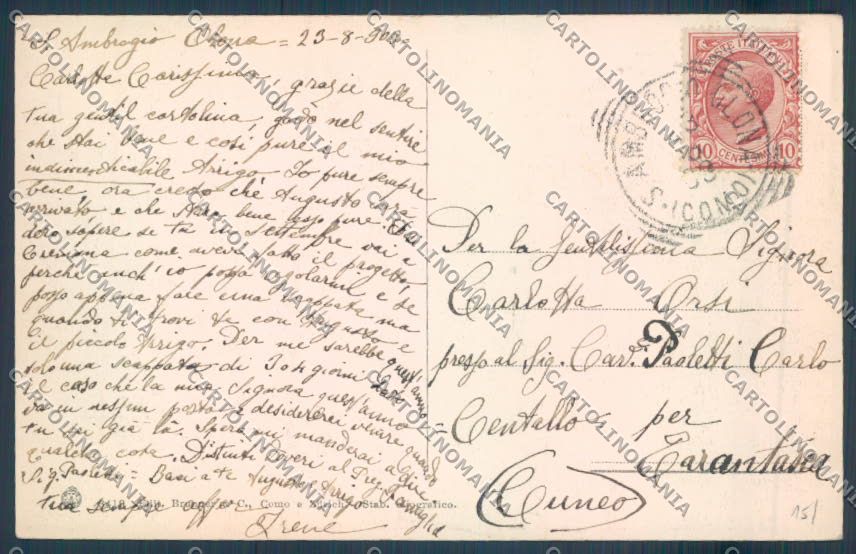 S. Ambrogio Olona = 23-8-
Carlotta Carissima, grazie della
tua gentil cartolina, godo nel sentire
che stai bene e così pure il mio
indimenticabile Arrigo. Io pure sempre
bene, ora credo che Augusto sarà
arrivato e che starà bene
sapere se tu in settembre vai a
Cremona come avevi fatto il progetto,
perché anch'io possa regolarmi e se
posso appena fare una scappata ma
quando ti trovi tu con Augusto e
il piccolo Arrigo. Per me sarebbe quest'anno
solo una scappata di 3 o 4 giorni dato
il caso che la mia Signora quest'anno
va in nessun posto e desidererei venire quando
tu sei già là. Spero mi manderai a dire
qualche cosa. Distinti doveri al Preg.
Sig. Paoletti = Baci a te Augusto e Arrigo
tua sempre aff.
Irene
Per la Gentilissima Signora
Carlotta Orsi
presso al Sig. Cav. Paoletti Carlo
Centallo per
Tarantasca
(Cuneo)
POSTE ITALIANE
10 CENTESIMI 10
Edit. Brunner & C., Como e Zürich. Stab. Grafico.
15/
CARTOLINOMANIA